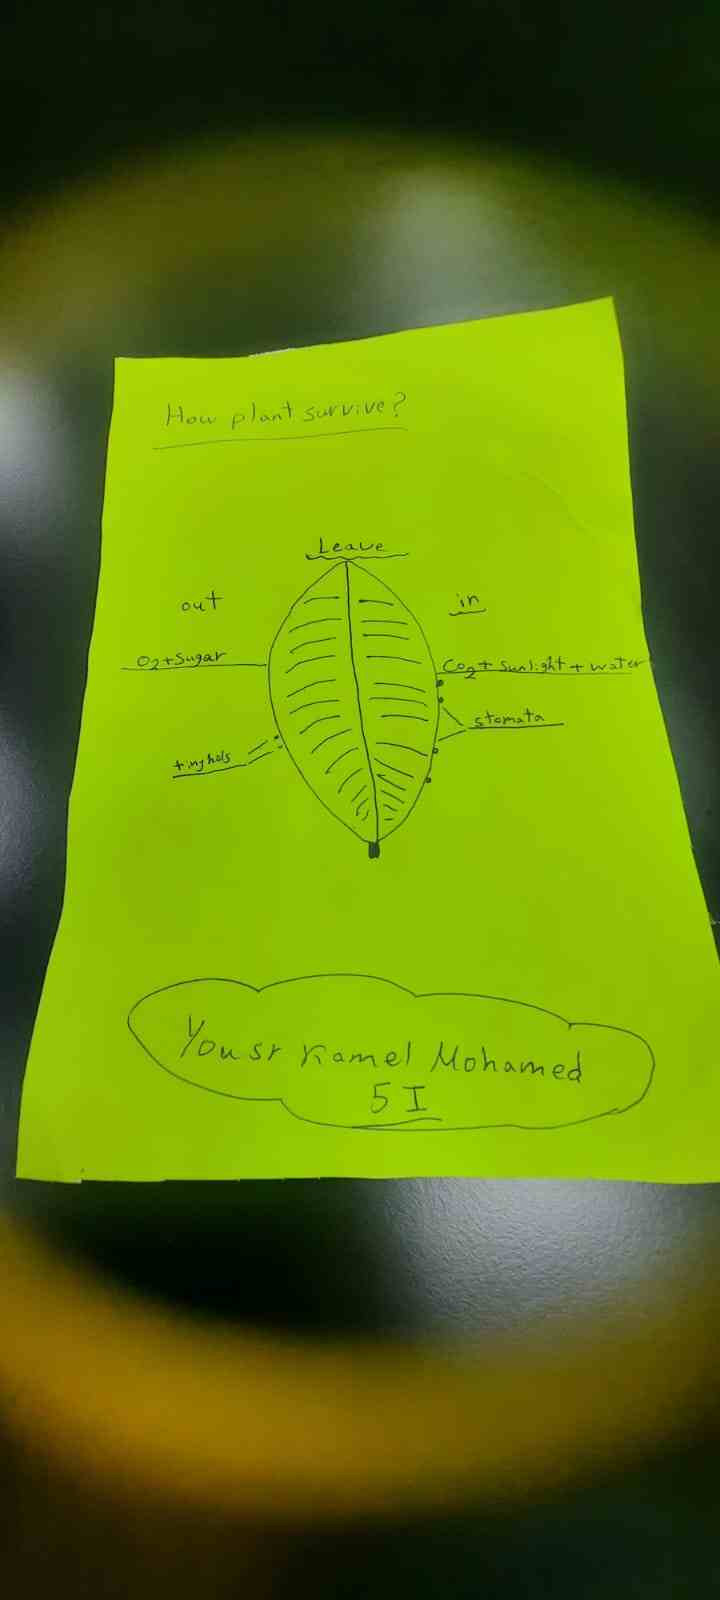 How plant survive?
Leave
out
in
O2+Sugar
CO2+ Sunlight + water
stomata
tinyhols
Yousr Kamel Mohamed
5 I